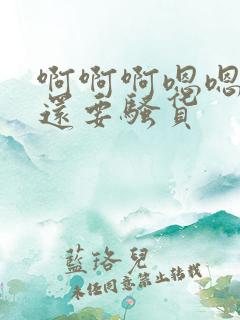 啊啊啊嗯嗯
還要騷貨
藍珞兒
未经同意禁止转载